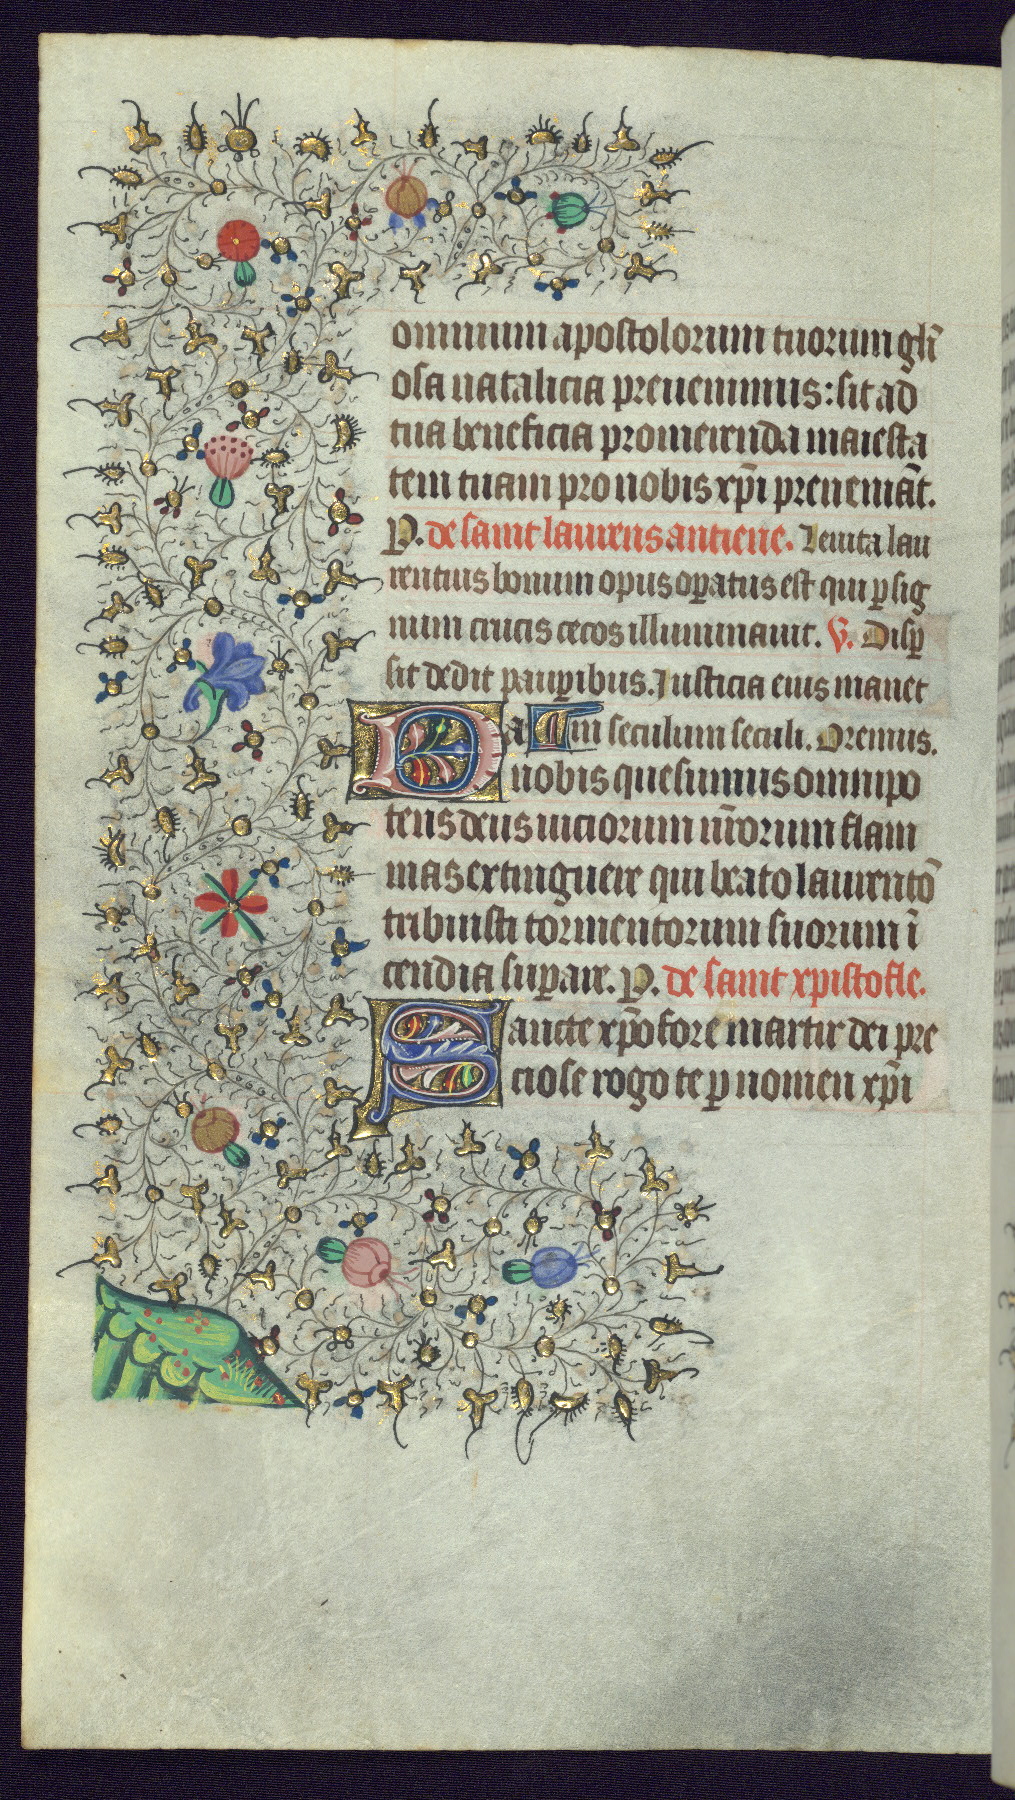 omnium apostolorum tuorum gl̄i
osa natalicia preuenimus: sit ad
tua beneficia promerenda maiesta
tem tuam pro nobis xp̄i preueniāt.
P. de saint laurens antiene. Leuita lau
rentius bonum opus op̄atus est qui p̱ sig
num crucis cecos illuminauit. V. Disp̱
sit dedit paup̱ibus. Iusticia eius manet
Da in seculum seculi. Oremus.
nobis quesumus omnipo
tens deus uiciorum nr̄orum flam
mas extinguere qui beato laurentō
tribuisti tormentorum suorum ī
cendia sup̱are. P. de saint xpistofle.
Sancte xp̄ofore martir dei pre
ciose rogo te p̱ nomen xp̄i